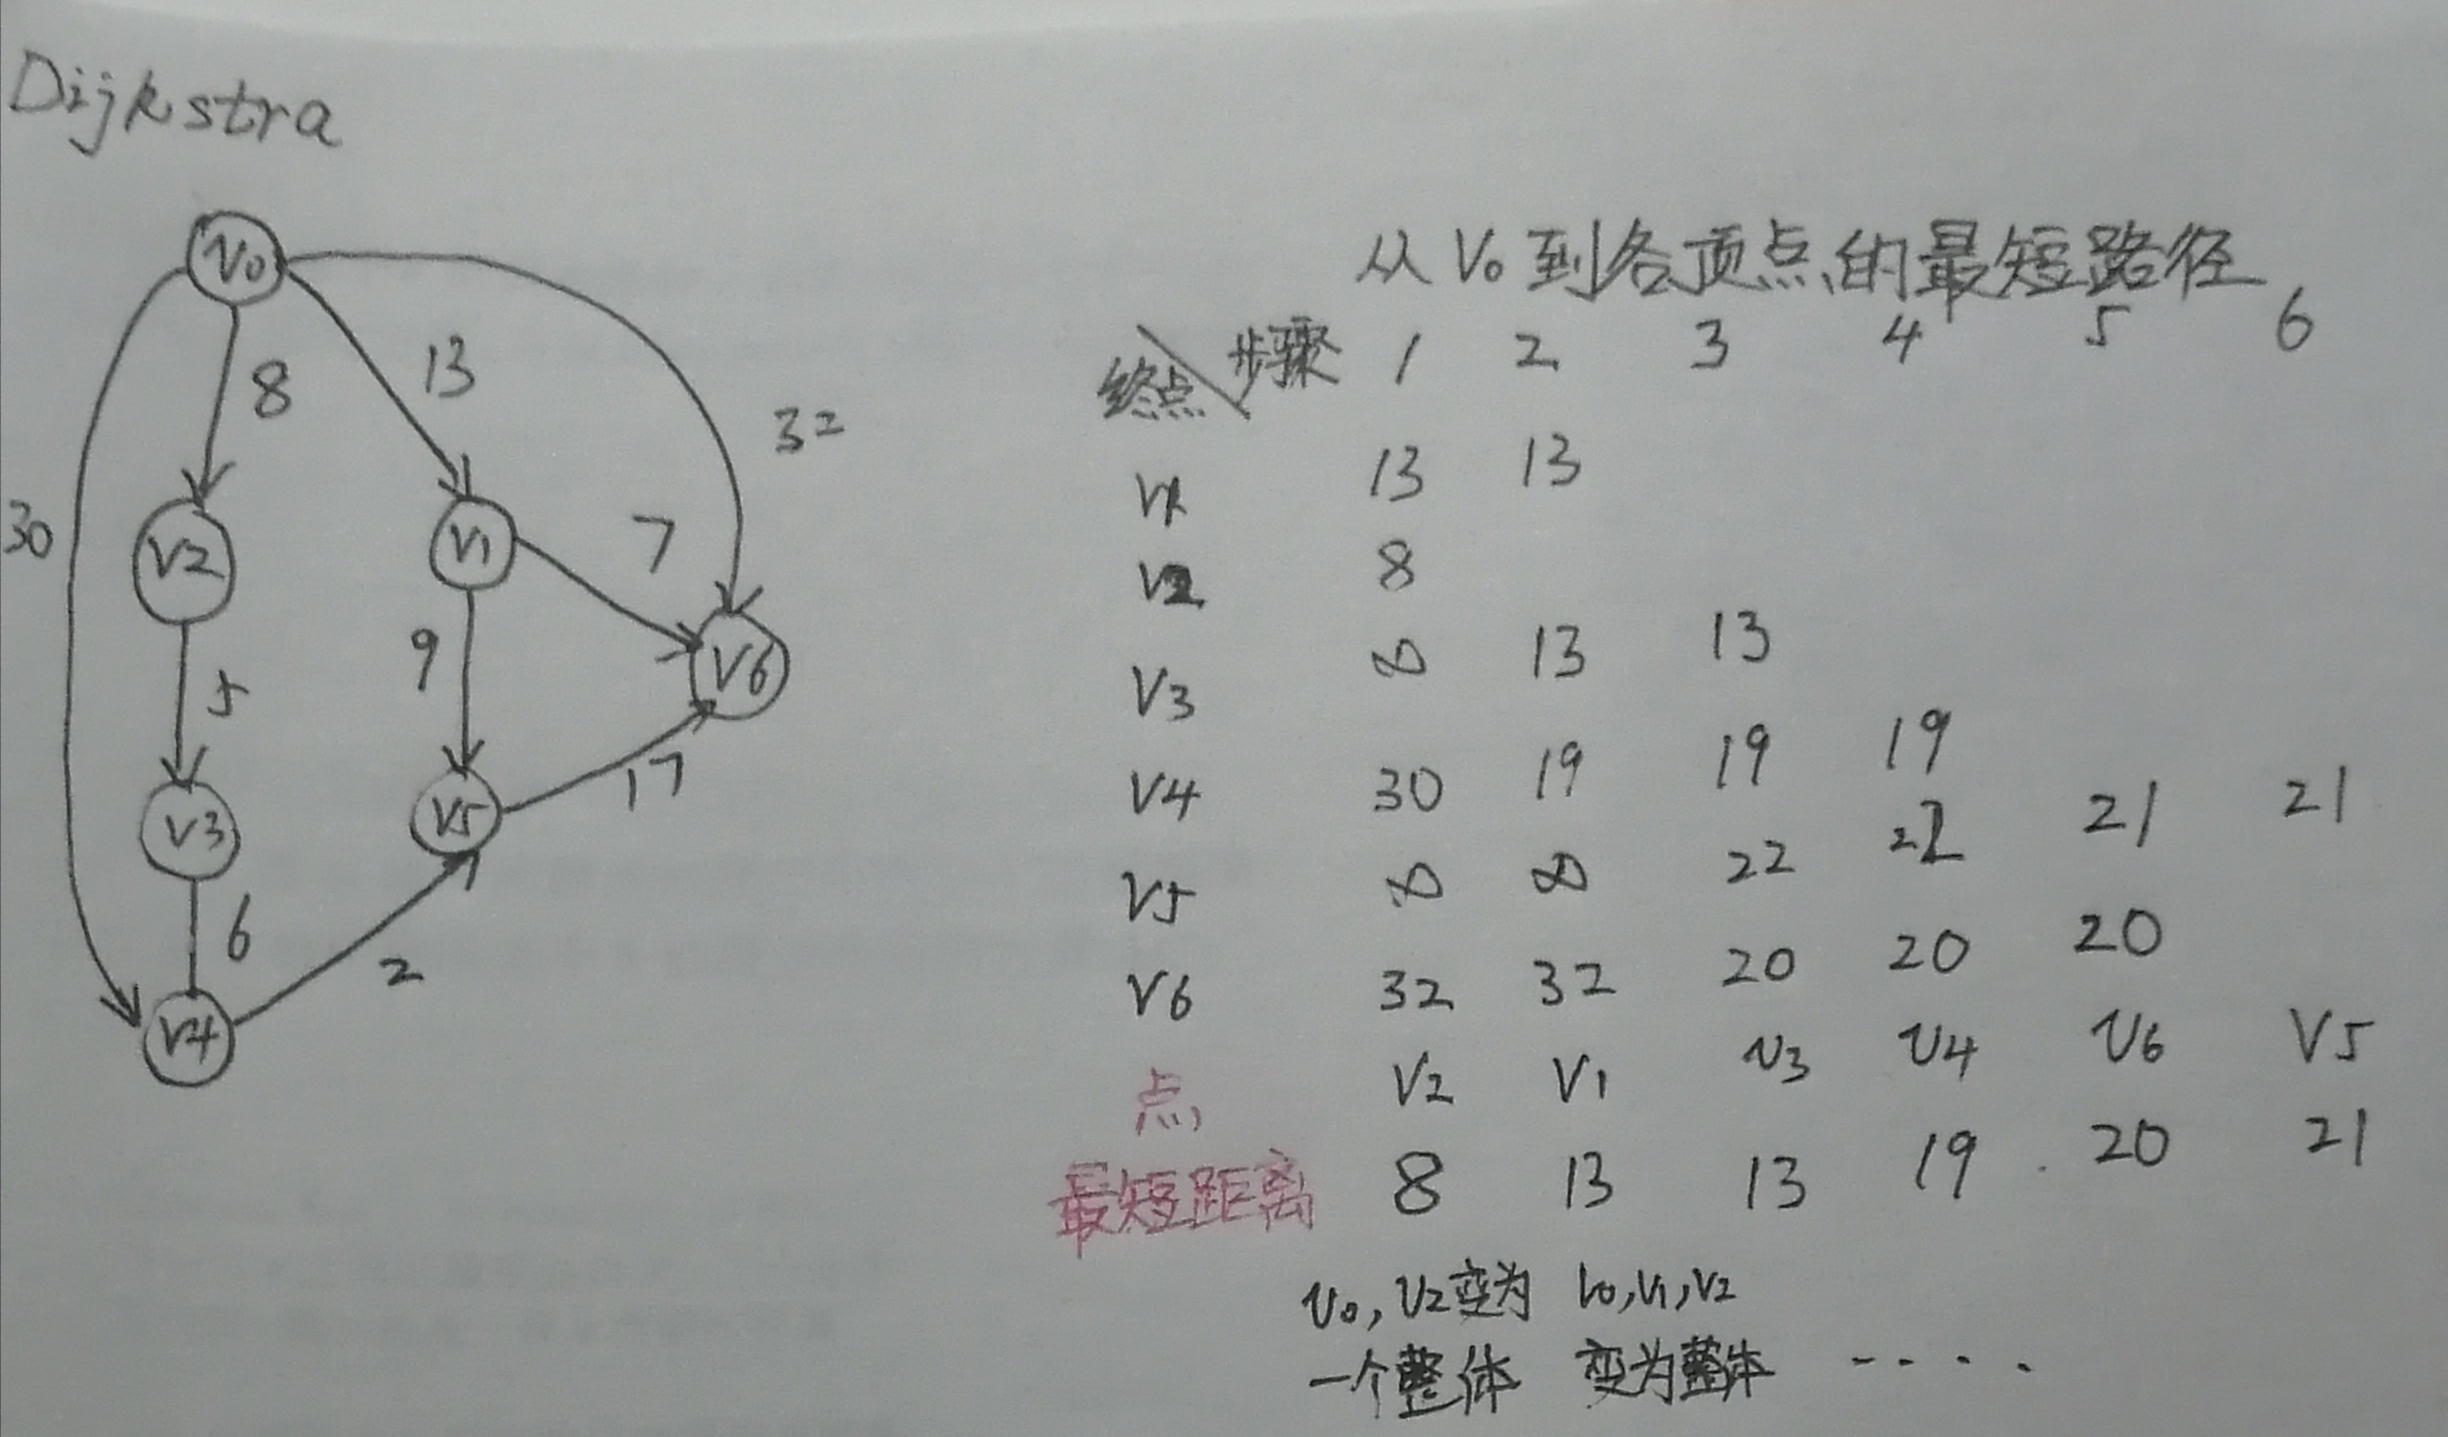 Dijkstra
V0
8
13
32
30
V2
V1
7
9
5
V6
17
V3
V5
6
2
V4
从V0到各顶点的最短路径
终点 步骤 1 2 3 4 5 6
V1 13 13
V2 8
V3 ∞ 13 13
V4 30 19 19 19
V5 ∞ ∞ 22 21 21
V6 32 32 20 20 20
点 V2 V1 V3 V4 V6 V5
最短距离 8 13 13 19 20 21
V0,V2变为 V0,V1,V2
一个整体 变为整体 ....